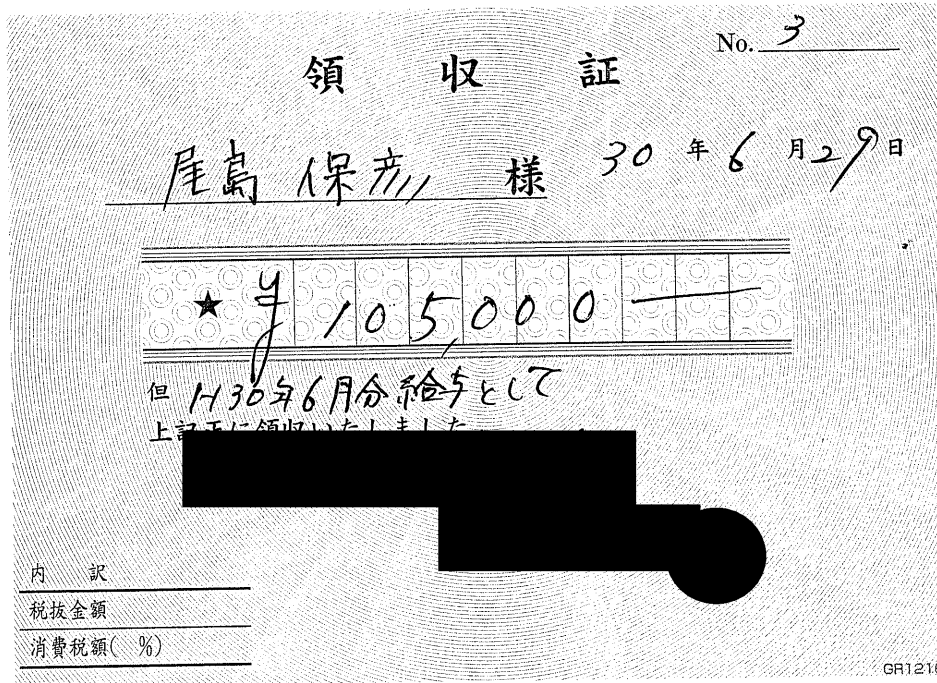 No. 3
領 収 証
尾島 保彦 様 30年6月29日
★ ¥105,000―
但 H30年6月分給与として
上記正に領収いたしました
内 訳
税抜金額
消費税額( %)
GR121